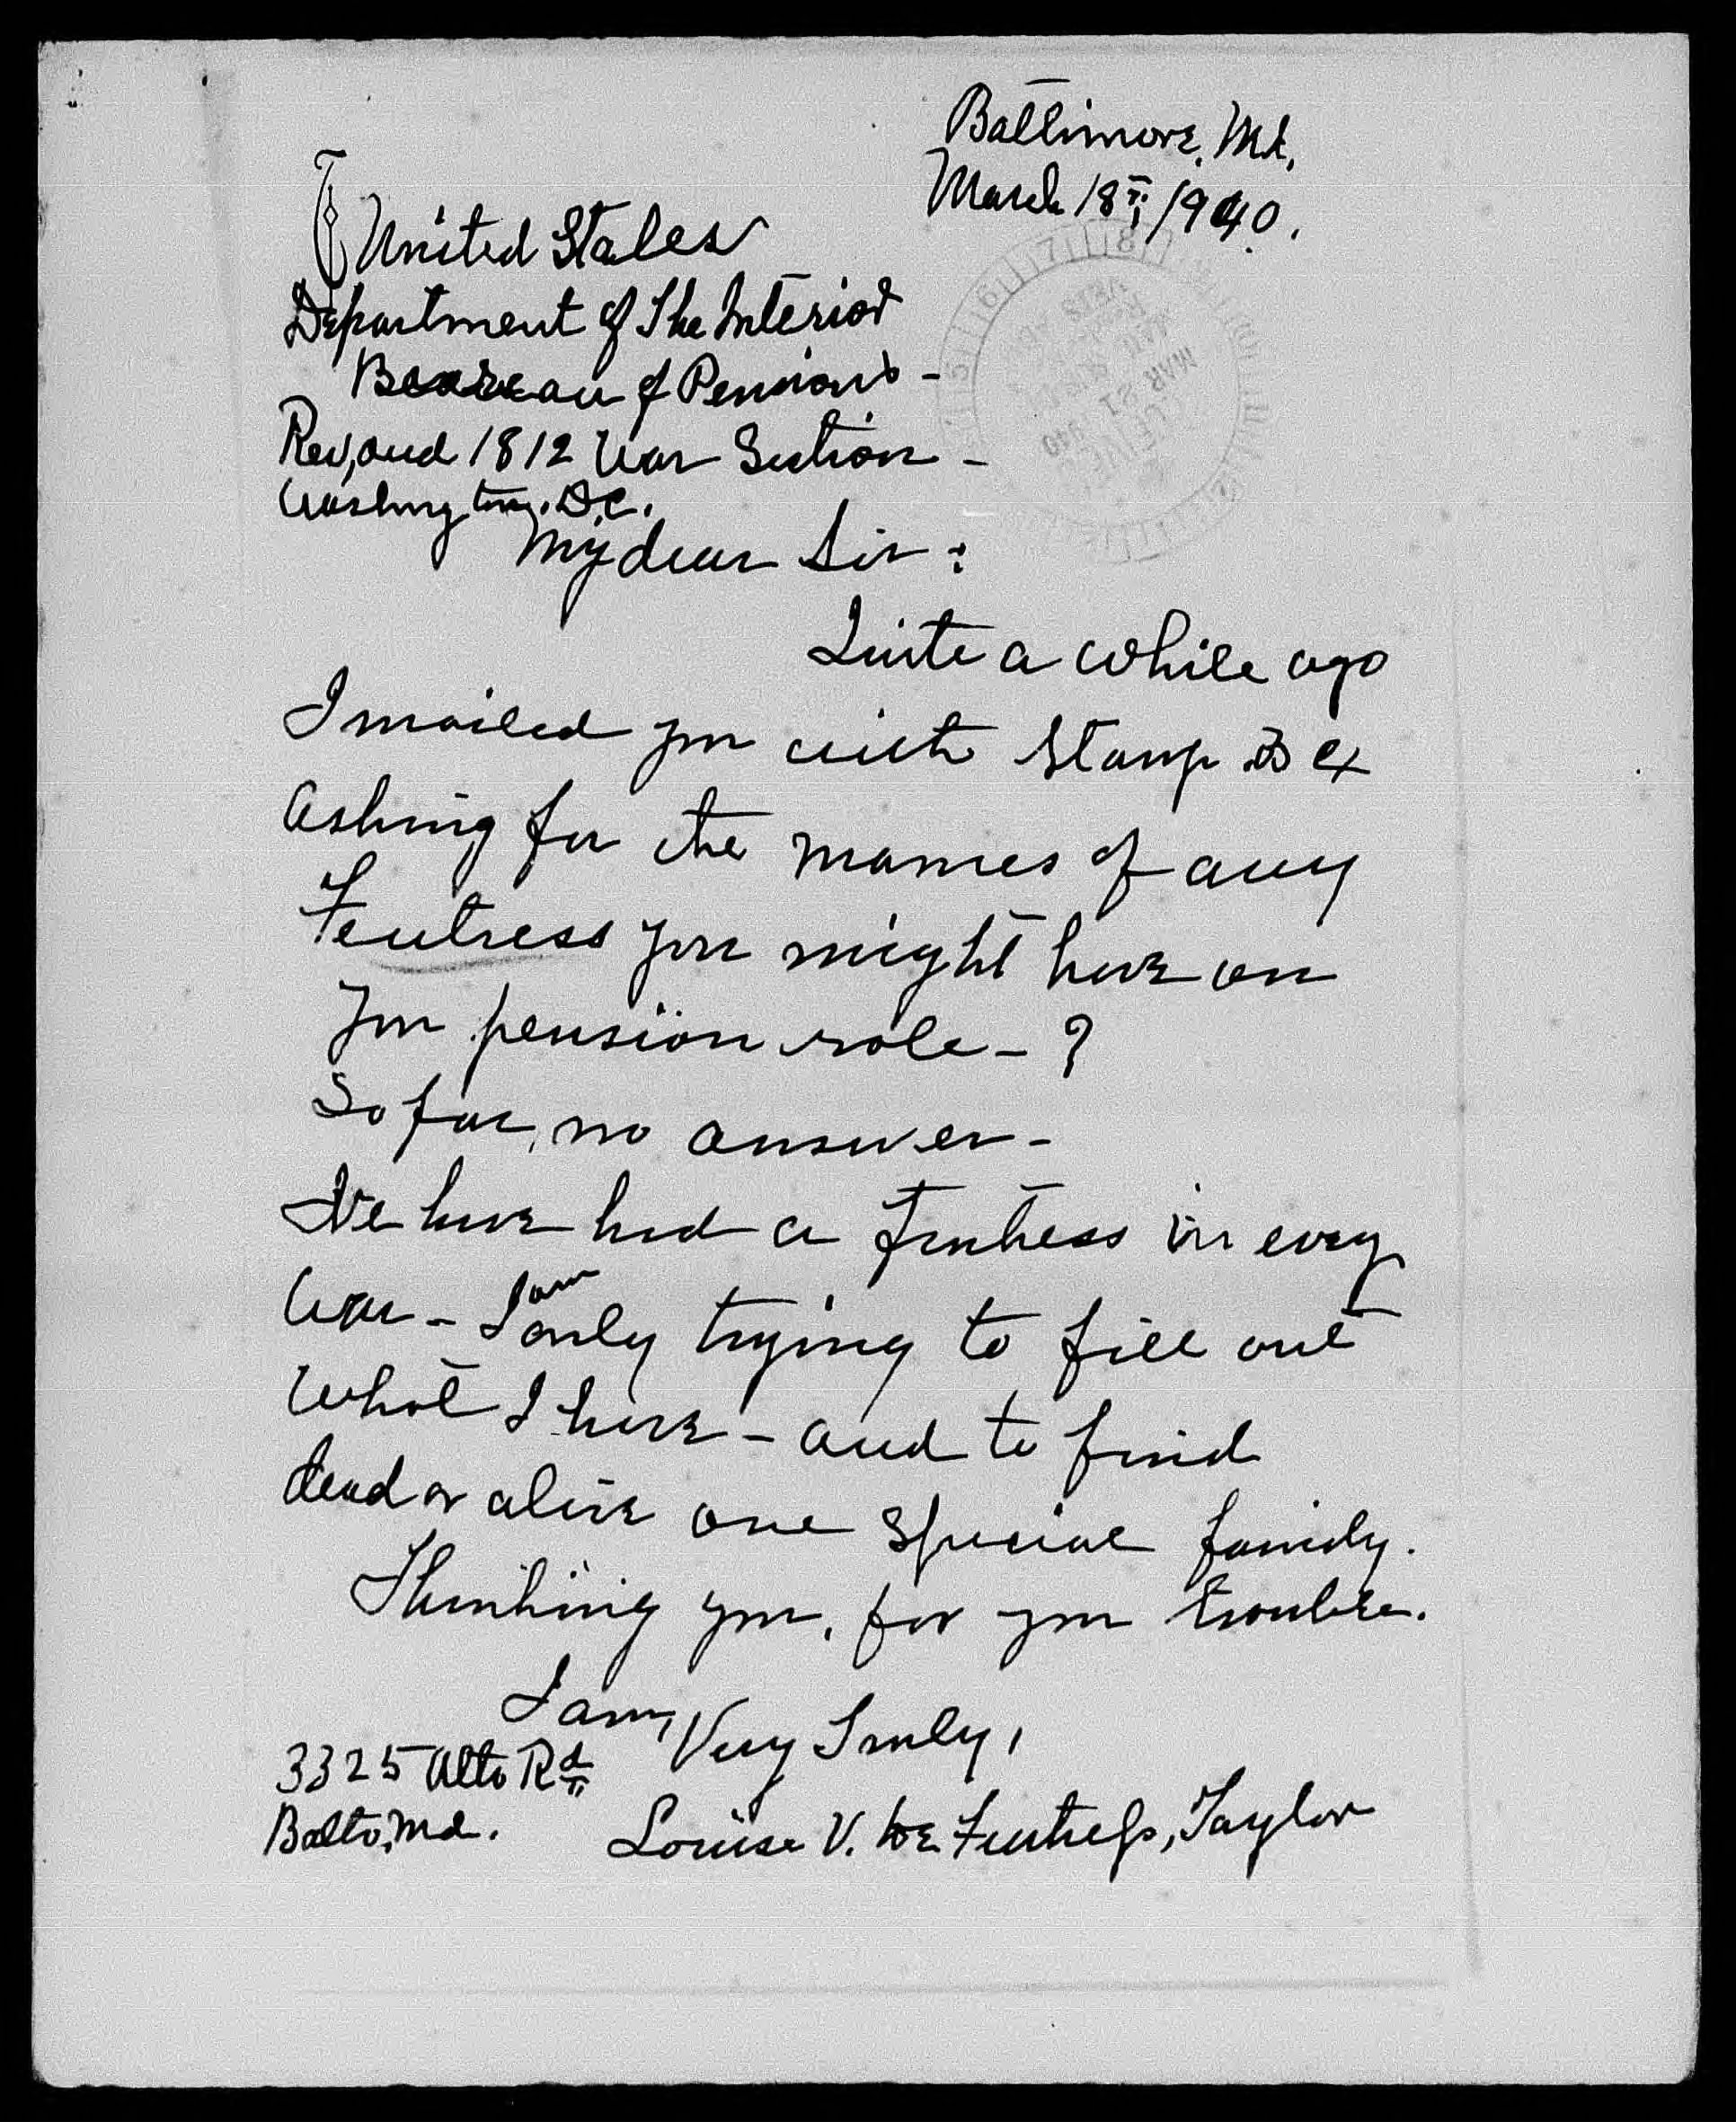 Baltimore, Md,
March 18th, 1940.
United States
Department of The Interior
Bureau of Pensions -
Rev, and 1812 War Section -
Washington. D.C.
My dear Sir :
Quite a while ago
I mailed you with stamp
asking for the names of any
Fentress you might have on
your pension role - ?
So far, no answer -
We have had a Fentress in every
War - I am only trying to fill out
what I have - and to find
dead or alive one special family.
Thanking you, for your trouble.
I am, Very Truly,
3325 Alto Rd
Balto, Md.
Louise V. Fentress, Taylor
MAR 21 1940